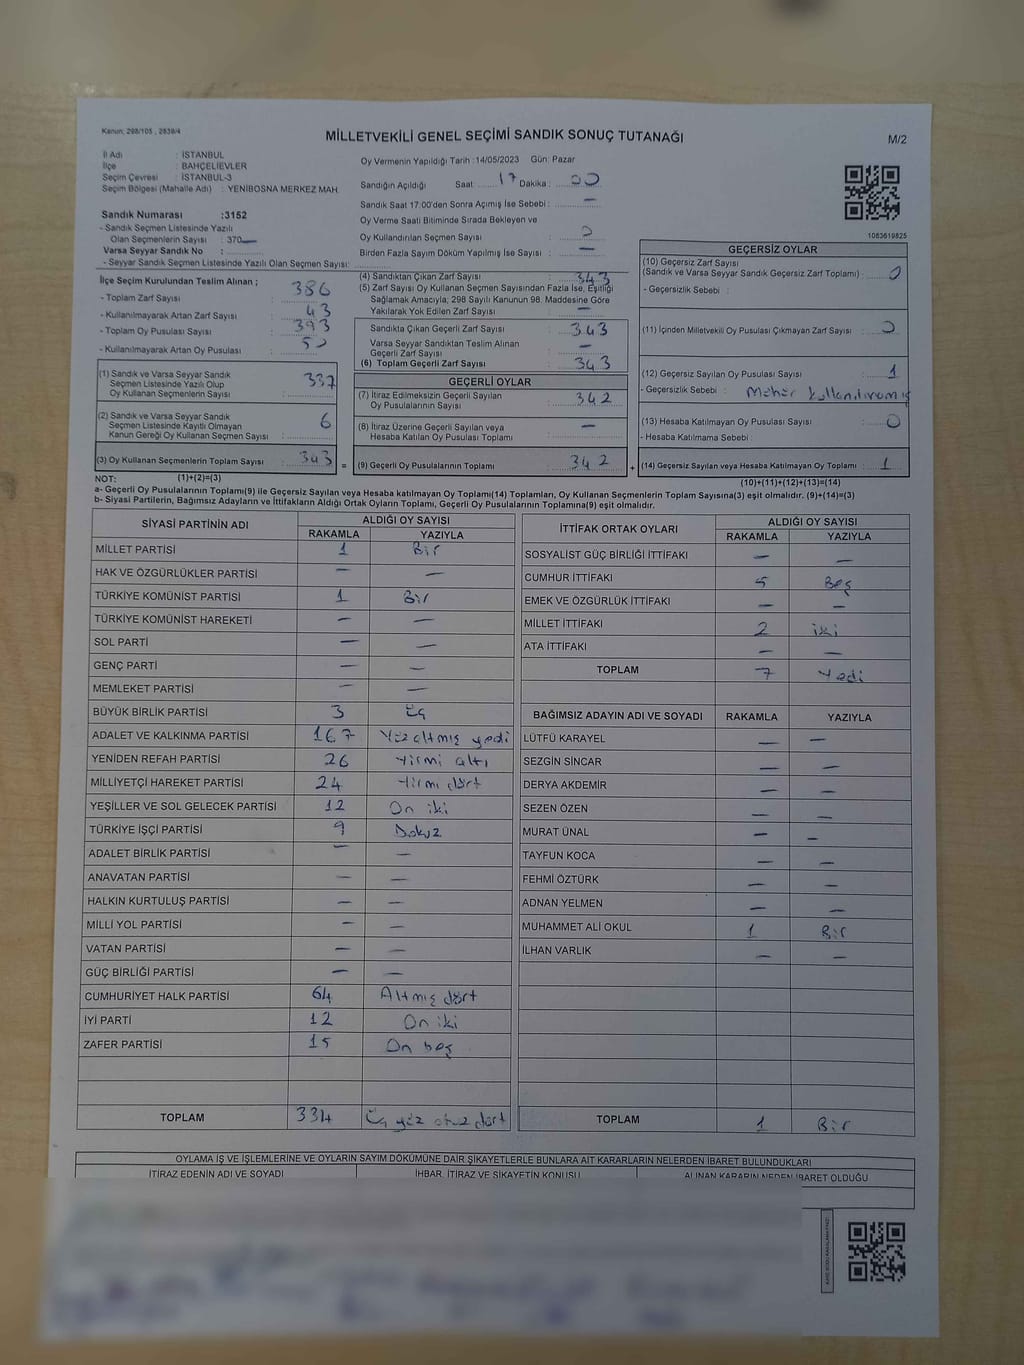 Kanun; 298/105 , 2839/4
MİLLETVEKİLİ GENEL SEÇİMİ SANDIK SONUÇ TUTANAĞI
M/2
İl Adı : İSTANBUL
İlçe : BAHÇELİEVLER
Seçim Çevresi : İSTANBUL-3
Seçim Bölgesi (Mahalle Adı) : YENİBOSNA MERKEZ MAH.
Oy Vermenin Yapıldığı Tarih : 14/05/2023 Gün: Pazar
Sandığın Açıldığı Saat 17 Dakika : 00
Sandık Saat 17:00'den Sonra Açımış İse Sebebi : —
Oy Verme Saati Bitiminde Sırada Bekleyen ve
Oy Kullandırılan Seçmen Sayısı : 0
Birden Fazla Sayım Döküm Yapılmış İse Sayısı : —
Sandık Numarası :3152
- Sandık Seçmen Listesinde Yazılı
Olan Seçmenlerin Sayısı : 370
Varsa Seyyar Sandık No :
- Seyyar Sandık Seçmen Listesinde Yazılı Olan Seçmen Sayısı:
1083619825
İlçe Seçim Kurulundan Teslim Alınan ;
- Toplam Zarf Sayısı : 386
- Kullanılmayarak Artan Zarf Sayısı : 43
- Toplam Oy Pusulası Sayısı : 393
- Kullanılmayarak Artan Oy Pusulası : 50
(1) Sandık ve Varsa Seyyar Sandık
Seçmen Listesinde Yazılı Olup
Oy Kullanan Seçmenlerin Sayısı : 337
(2) Sandık ve Varsa Seyyar Sandık
Seçmen Listesinde Kayıtlı Olmayan
Kanun Gereği Oy Kullanan Seçmen Sayısı : 6
(3) Oy Kullanan Seçmenlerin Toplam Sayısı : 343
(4) Sandıktan Çıkan Zarf Sayısı : 343
(5) Zarf Sayısı Oy Kullanan Seçmen Sayısından Fazla İse, Eşitliği
Sağlamak Amacıyla; 298 Sayılı Kanunun 98. Maddesine Göre
Yakılarak Yok Edilen Zarf Sayısı : —
Sandıkta Çıkan Geçerli Zarf Sayısı : 343
Varsa Seyyar Sandıktan Teslim Alınan
Geçerli Zarf Sayısı : —
(6) Toplam Geçerli Zarf Sayısı : 343
GEÇERLİ OYLAR
(7) İtiraz Edilmeksizin Geçerli Sayılan
Oy Pusulalarının Sayısı : 342
(8) İtiraz Üzerine Geçerli Sayılan veya
Hesaba Katılan Oy Pusulası Toplamı : —
= (9) Geçerli Oy Pusulalarının Toplamı : 342
GEÇERSİZ OYLAR
(10) Geçersiz Zarf Sayısı
(Sandık ve Varsa Seyyar Sandık Geçersiz Zarf Toplamı) : 0
- Geçersizlik Sebebi :
(11) İçinden Milletvekili Oy Pusulası Çıkmayan Zarf Sayısı : 0
(12) Geçersiz Sayılan Oy Pusulası Sayısı : 1
- Geçersizlik Sebebi : Mühür kullanılmamış
(13) Hesaba Katılmayan Oy Pusulası Sayısı : 0
- Hesaba Katılmama Sebebi :
+ (14) Geçersiz Sayılan veya Hesaba Katılmayan Oy Toplamı : 1
NOT: (1)+(2)=(3)
(10)+(11)+(12)+(13)=(14)
a- Geçerli Oy Pusulalarının Toplamı(9) ile Geçersiz Sayılan veya Hesaba katılmayan Oy Toplamı(14) Toplamları, Oy Kullanan Seçmenlerin Toplam Sayısına(3) eşit olmalıdır. (9)+(14)=(3)
b- Siyasi Partilerin, Bağımsız Adayların ve İttifakların Aldığı Ortak Oyların Toplamı, Geçerli Oy Pusulalarının Toplamına(9) eşit olmalıdır.
SİYASİ PARTİNİN ADI ALDIĞI OY SAYISI
RAKAMLA YAZIYLA
MİLLET PARTİSİ 1 Bir
HAK VE ÖZGÜRLÜKLER PARTİSİ — —
TÜRKİYE KOMÜNİST PARTİSİ 1 Bir
TÜRKİYE KOMÜNİST HAREKETİ — —
SOL PARTİ — —
GENÇ PARTİ — —
MEMLEKET PARTİSİ — —
BÜYÜK BİRLİK PARTİSİ 3 Üç
ADALET VE KALKINMA PARTİSİ 167 Yüz altmış yedi
YENİDEN REFAH PARTİSİ 26 Yirmi altı
MİLLİYETÇİ HAREKET PARTİSİ 24 Yirmi dört
YEŞİLLER VE SOL GELECEK PARTİSİ 12 On iki
TÜRKİYE İŞÇİ PARTİSİ 9 Dokuz
ADALET BİRLİK PARTİSİ — —
ANAVATAN PARTİSİ — —
HALKIN KURTULUŞ PARTİSİ — —
MİLLİ YOL PARTİSİ — —
VATAN PARTİSİ — —
GÜÇ BİRLİĞİ PARTİSİ — —
CUMHURİYET HALK PARTİSİ 64 Altmış dört
İYİ PARTİ 12 On iki
ZAFER PARTİSİ 15 On beş
TOPLAM 334 Üç yüz otuz dört
İTTİFAK ORTAK OYLARI ALDIĞI OY SAYISI
RAKAMLA YAZIYLA
SOSYALİST GÜÇ BİRLİĞİ İTTİFAKI — —
CUMHUR İTTİFAKI 5 Beş
EMEK VE ÖZGÜRLÜK İTTİFAKI — —
MİLLET İTTİFAKI 2 iki
ATA İTTİFAKI — —
TOPLAM 7 Yedi
BAĞIMSIZ ADAYIN ADI VE SOYADI RAKAMLA YAZIYLA
LÜTFÜ KARAYEL — —
SEZGİN SİNCAR — —
DERYA AKDEMİR — —
SEZEN ÖZEN — —
MURAT ÜNAL — —
TAYFUN KOCA — —
FEHMİ ÖZTÜRK — —
ADNAN YELMEN — —
MUHAMMET ALİ OKUL 1 Bir
İLHAN VARLIK — —
TOPLAM 1 Bir
OYLAMA İŞ VE İŞLEMLERİNE VE OYLARIN SAYIM DÖKÜMÜNE DAİR ŞİKAYETLERLE BUNLARA AİT KARARLARIN NELERDEN İBARET BULUNDUKLARI
İTİRAZ EDENİN ADI VE SOYADI İHBAR, İTİRAZ VE ŞİKAYETİN KONUSU ALINAN KARARIN NEDEN İBARET OLDUĞU